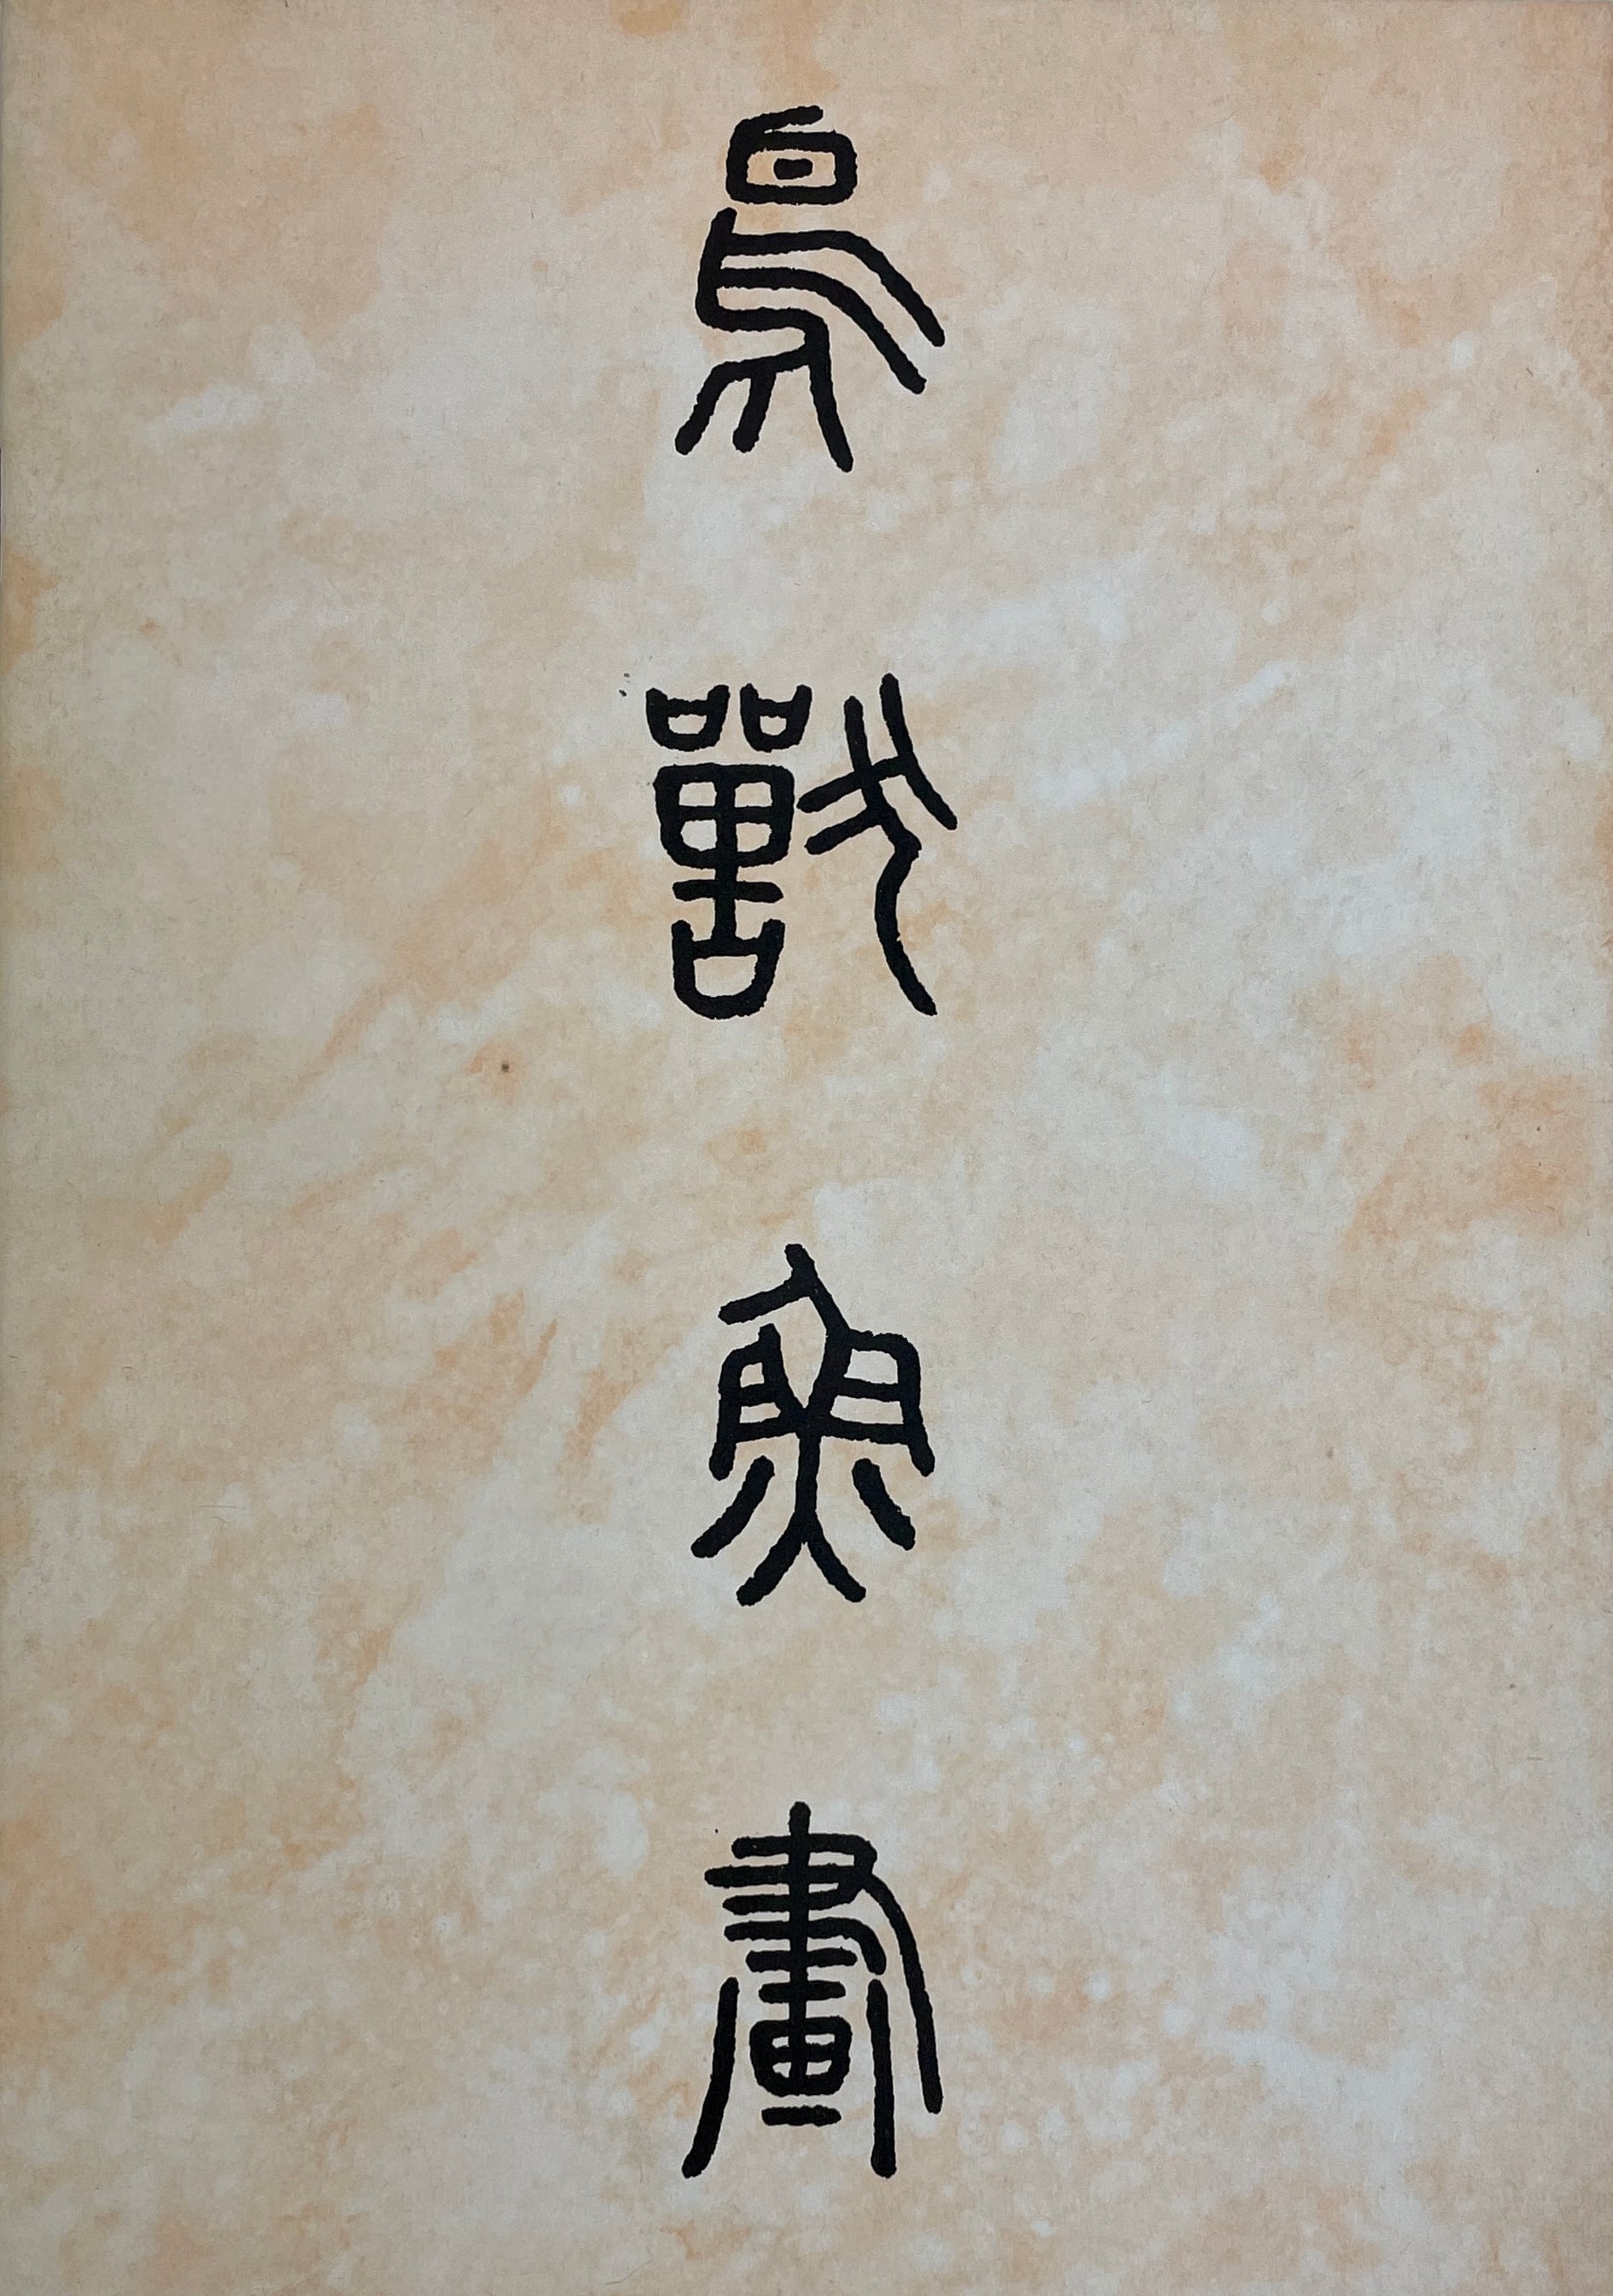 鳥獸魚畫